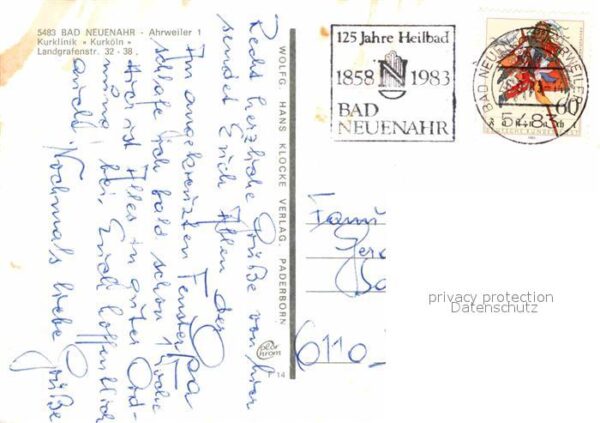 5483 BAD NEUENAHR - Ahrweiler 1
Kurklinik • Kurköln •
Landgrafenstr. 32 - 38
Recht herzliche Grüße von hier
sendet Euch Allen der Opa
Im angekreuzten Fenster
schlafe ich bald schon 1 Woche
Hier ist Alles in guter Ord-
nung bei Euch hoffentlich
auch! Nochmals liebe Grüße
WOLFG. HANS KLOCKE VERLAG, PADERBORN
color
chrom
F 14
125 Jahre Heilbad
1858 N 1983
BAD
NEUENAHR
BAD NEUENAHR-AHRWEILER
5483
60
DEUTSCHE BUNDESPOST
Fami
Ger
6110
privacy protection
Datenschutz